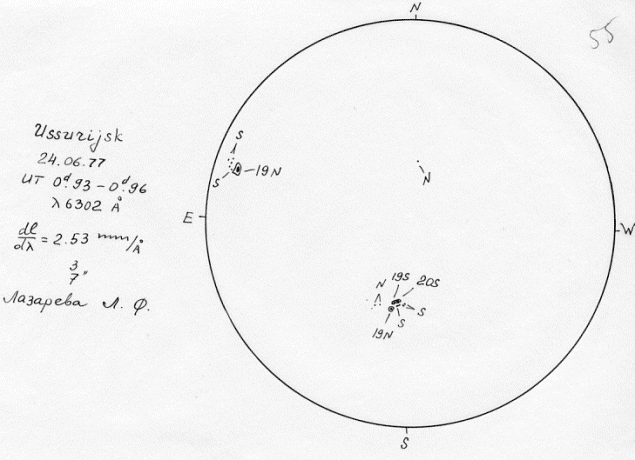 N
55
Ussurijsk
24.06.77
UT 0ᵈ.93 – 0ᵈ.96
λ 6302 Å
dl/dλ = 2.53 mm/Å
3
7"
Лазарева Л. Ф.
S
S
19N
N
E
W
N
19S
20S
S
S
19N
S